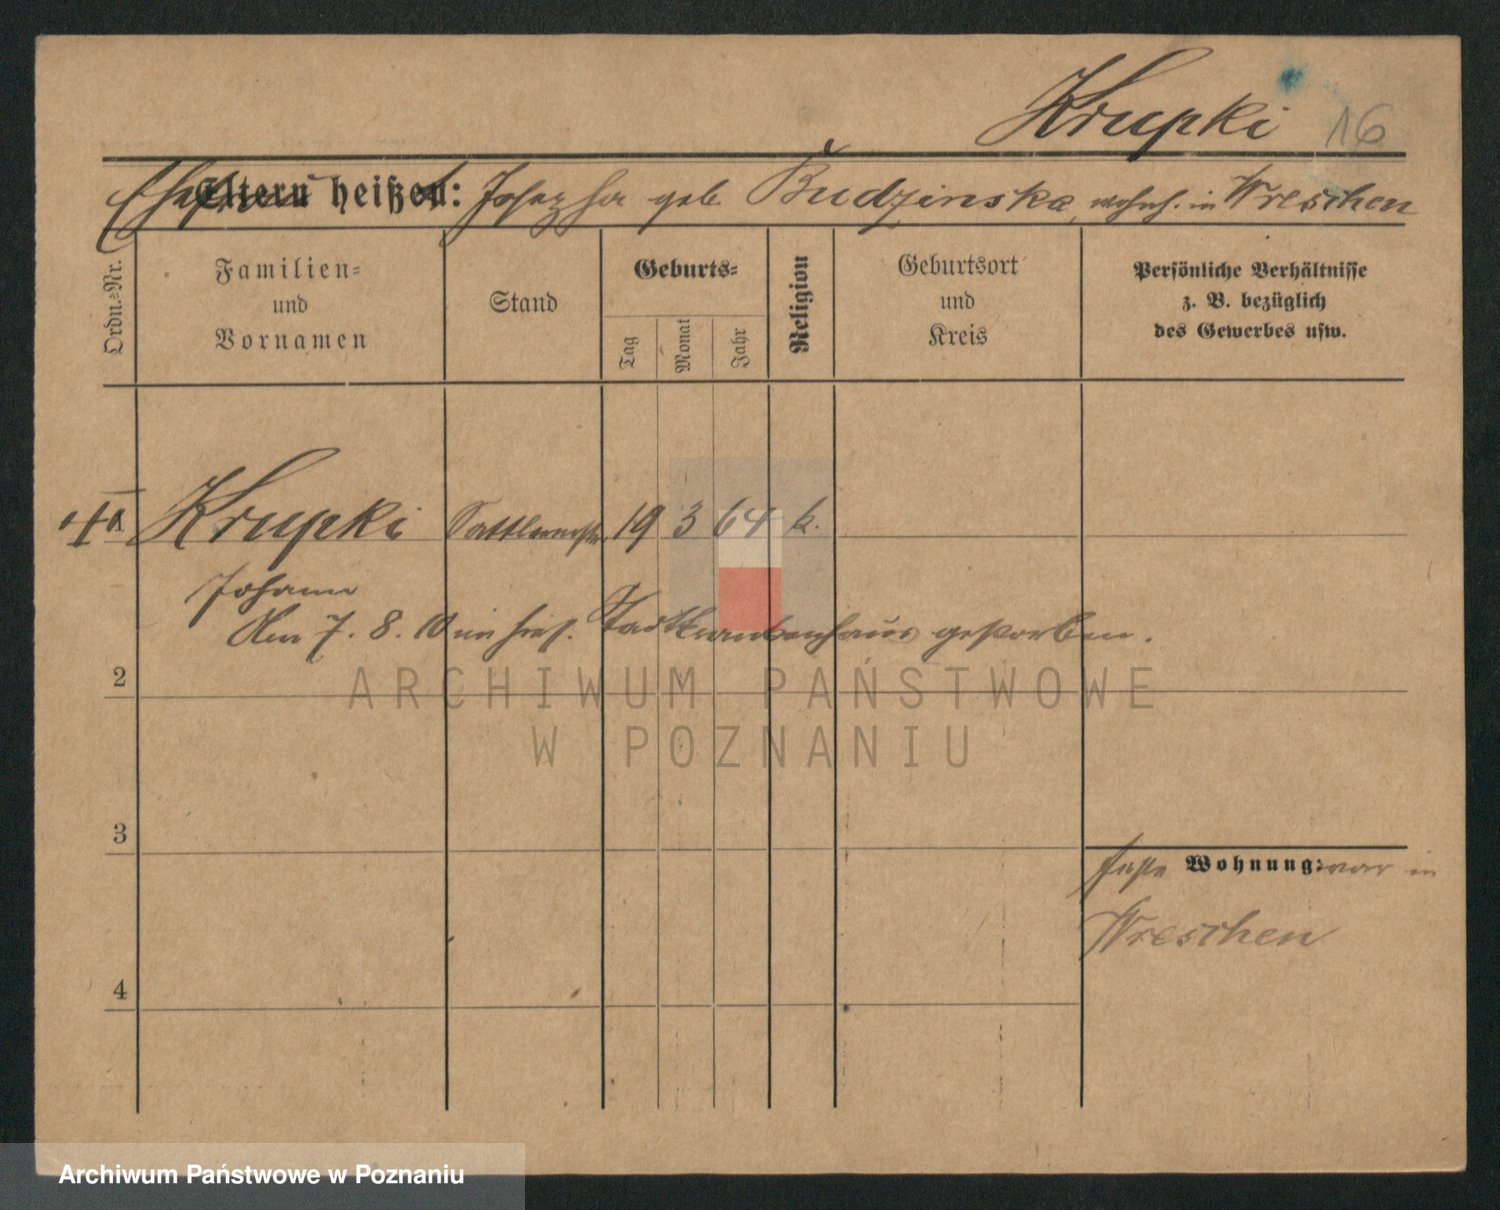 Krupki 16
Ehefrau Eltern heißen: Josepha geb. Budzinska, wohnh. in Wreschen
Ordn.=Nr.
Familien=
und
Vornamen
Stand
Geburts=
Tag
Monat
Jahr
Religion
Geburtsort
und
Kreis
Persönliche Verhältnisse
z. B. bezüglich
des Gewerbes usw.
1 Krupki Sattlermstr. 19 3 64 k.
Johann
Am 7. 8. 10 im hies. Stadtkrankenhaus gestorben.
2
3
feste Wohnung: war in
Wreschen
4
ARCHIWUM PAŃSTWOWE
W POZNANIU
Archiwum Państwowe w Poznaniu